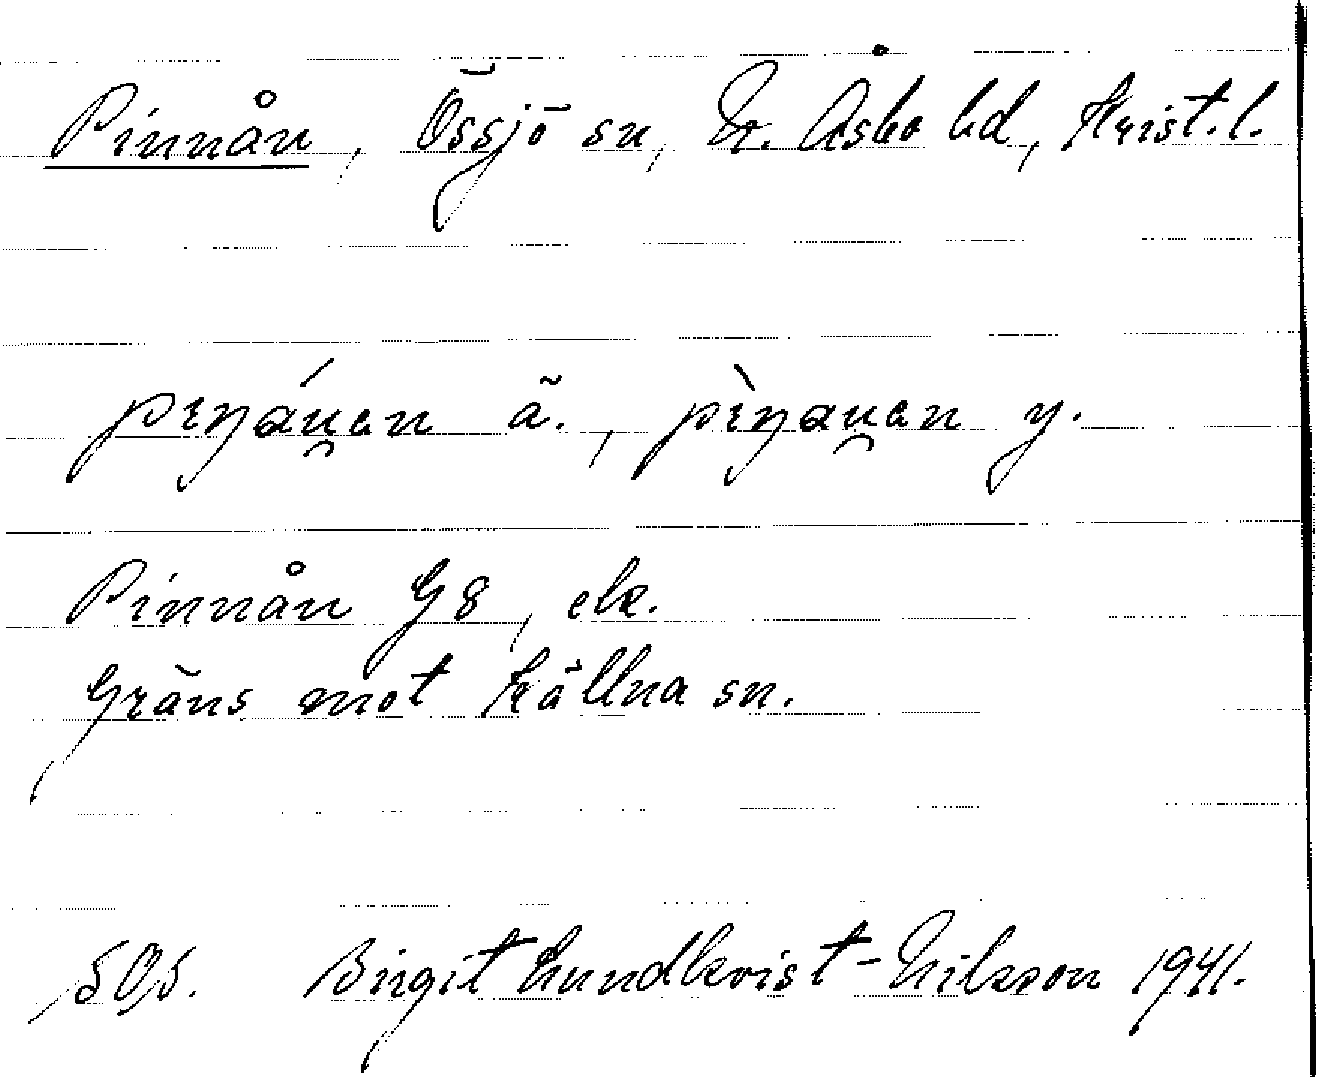 Pinnån, Össjö sn, N. Åsbo hd, Krist. l.
pıŋáu̯ən ä., pìŋau̯ən y.
Pinnån G8, ek.
Gräns mot Källna sn.
505. Birgit Lundkvist-Nilsson 1941.